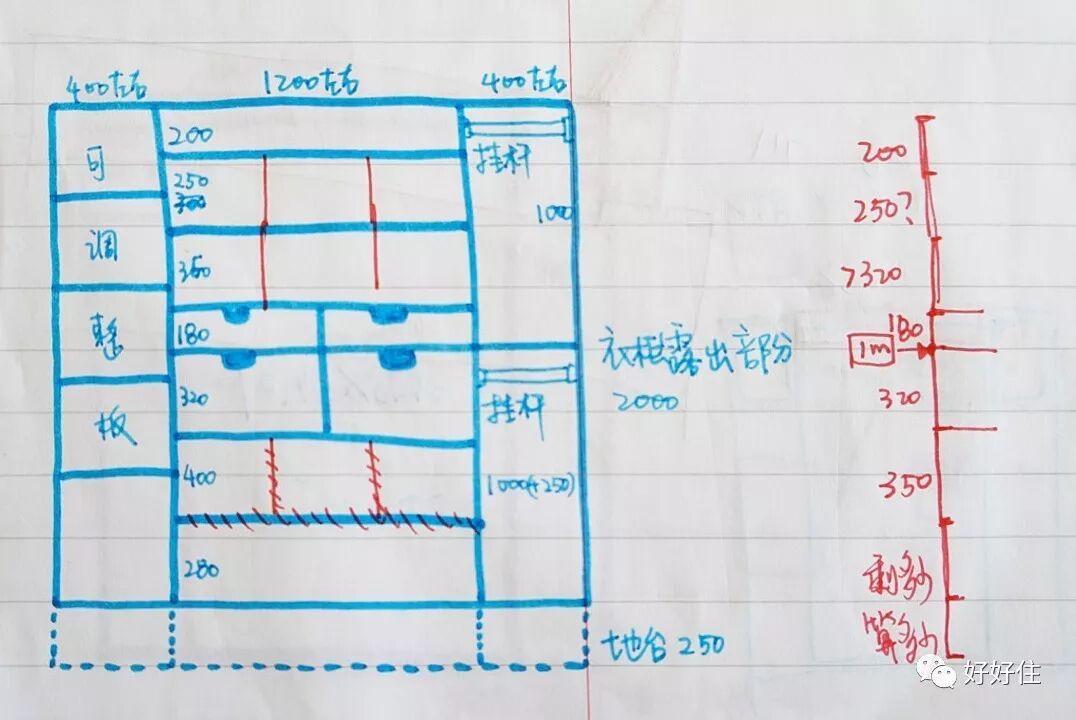 400左右 1200左右 400左右
可
调
整
板
200
250
300
350
180
320
400
280
挂杆
1000
挂杆
1000(+250)
衣柜露出部分
2000
地台250
200
250?
>320
180
1m
320
350
剩多少
算多少
好好住